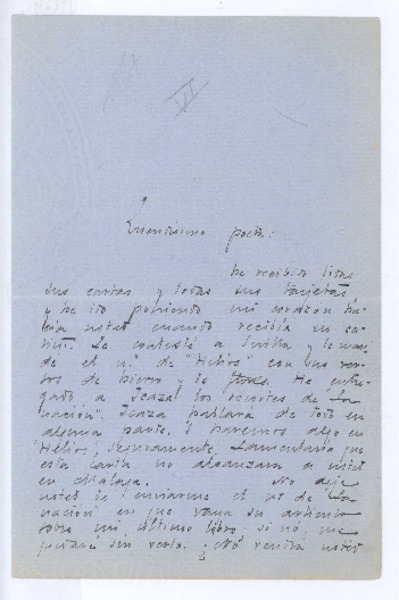 VI
Queridísimo poeta:
he recibido todas
sus cartas y todas sus tarjetas,
y he ido poniendo mi corazón ha-
cia usted cuando recibía su ca-
riño. Le contesté a Sevilla y le man-
dé el nº de "Helios" con sus ver-
sos de hierro y de flores. He entre-
gado a los recortes de "La
nación". hablará de todo en
alguna parte. Y haremos algo en
"Helios", seguramente. Lamentaría que
esta carta no alcanzara a usted
en Málaga. No deje
usted de enviarme el nº de "La
nación" en que vaya su artículo
sobre mi último libro: si nó, me
quedaré sin verlo. ¿Nó vendrá usted